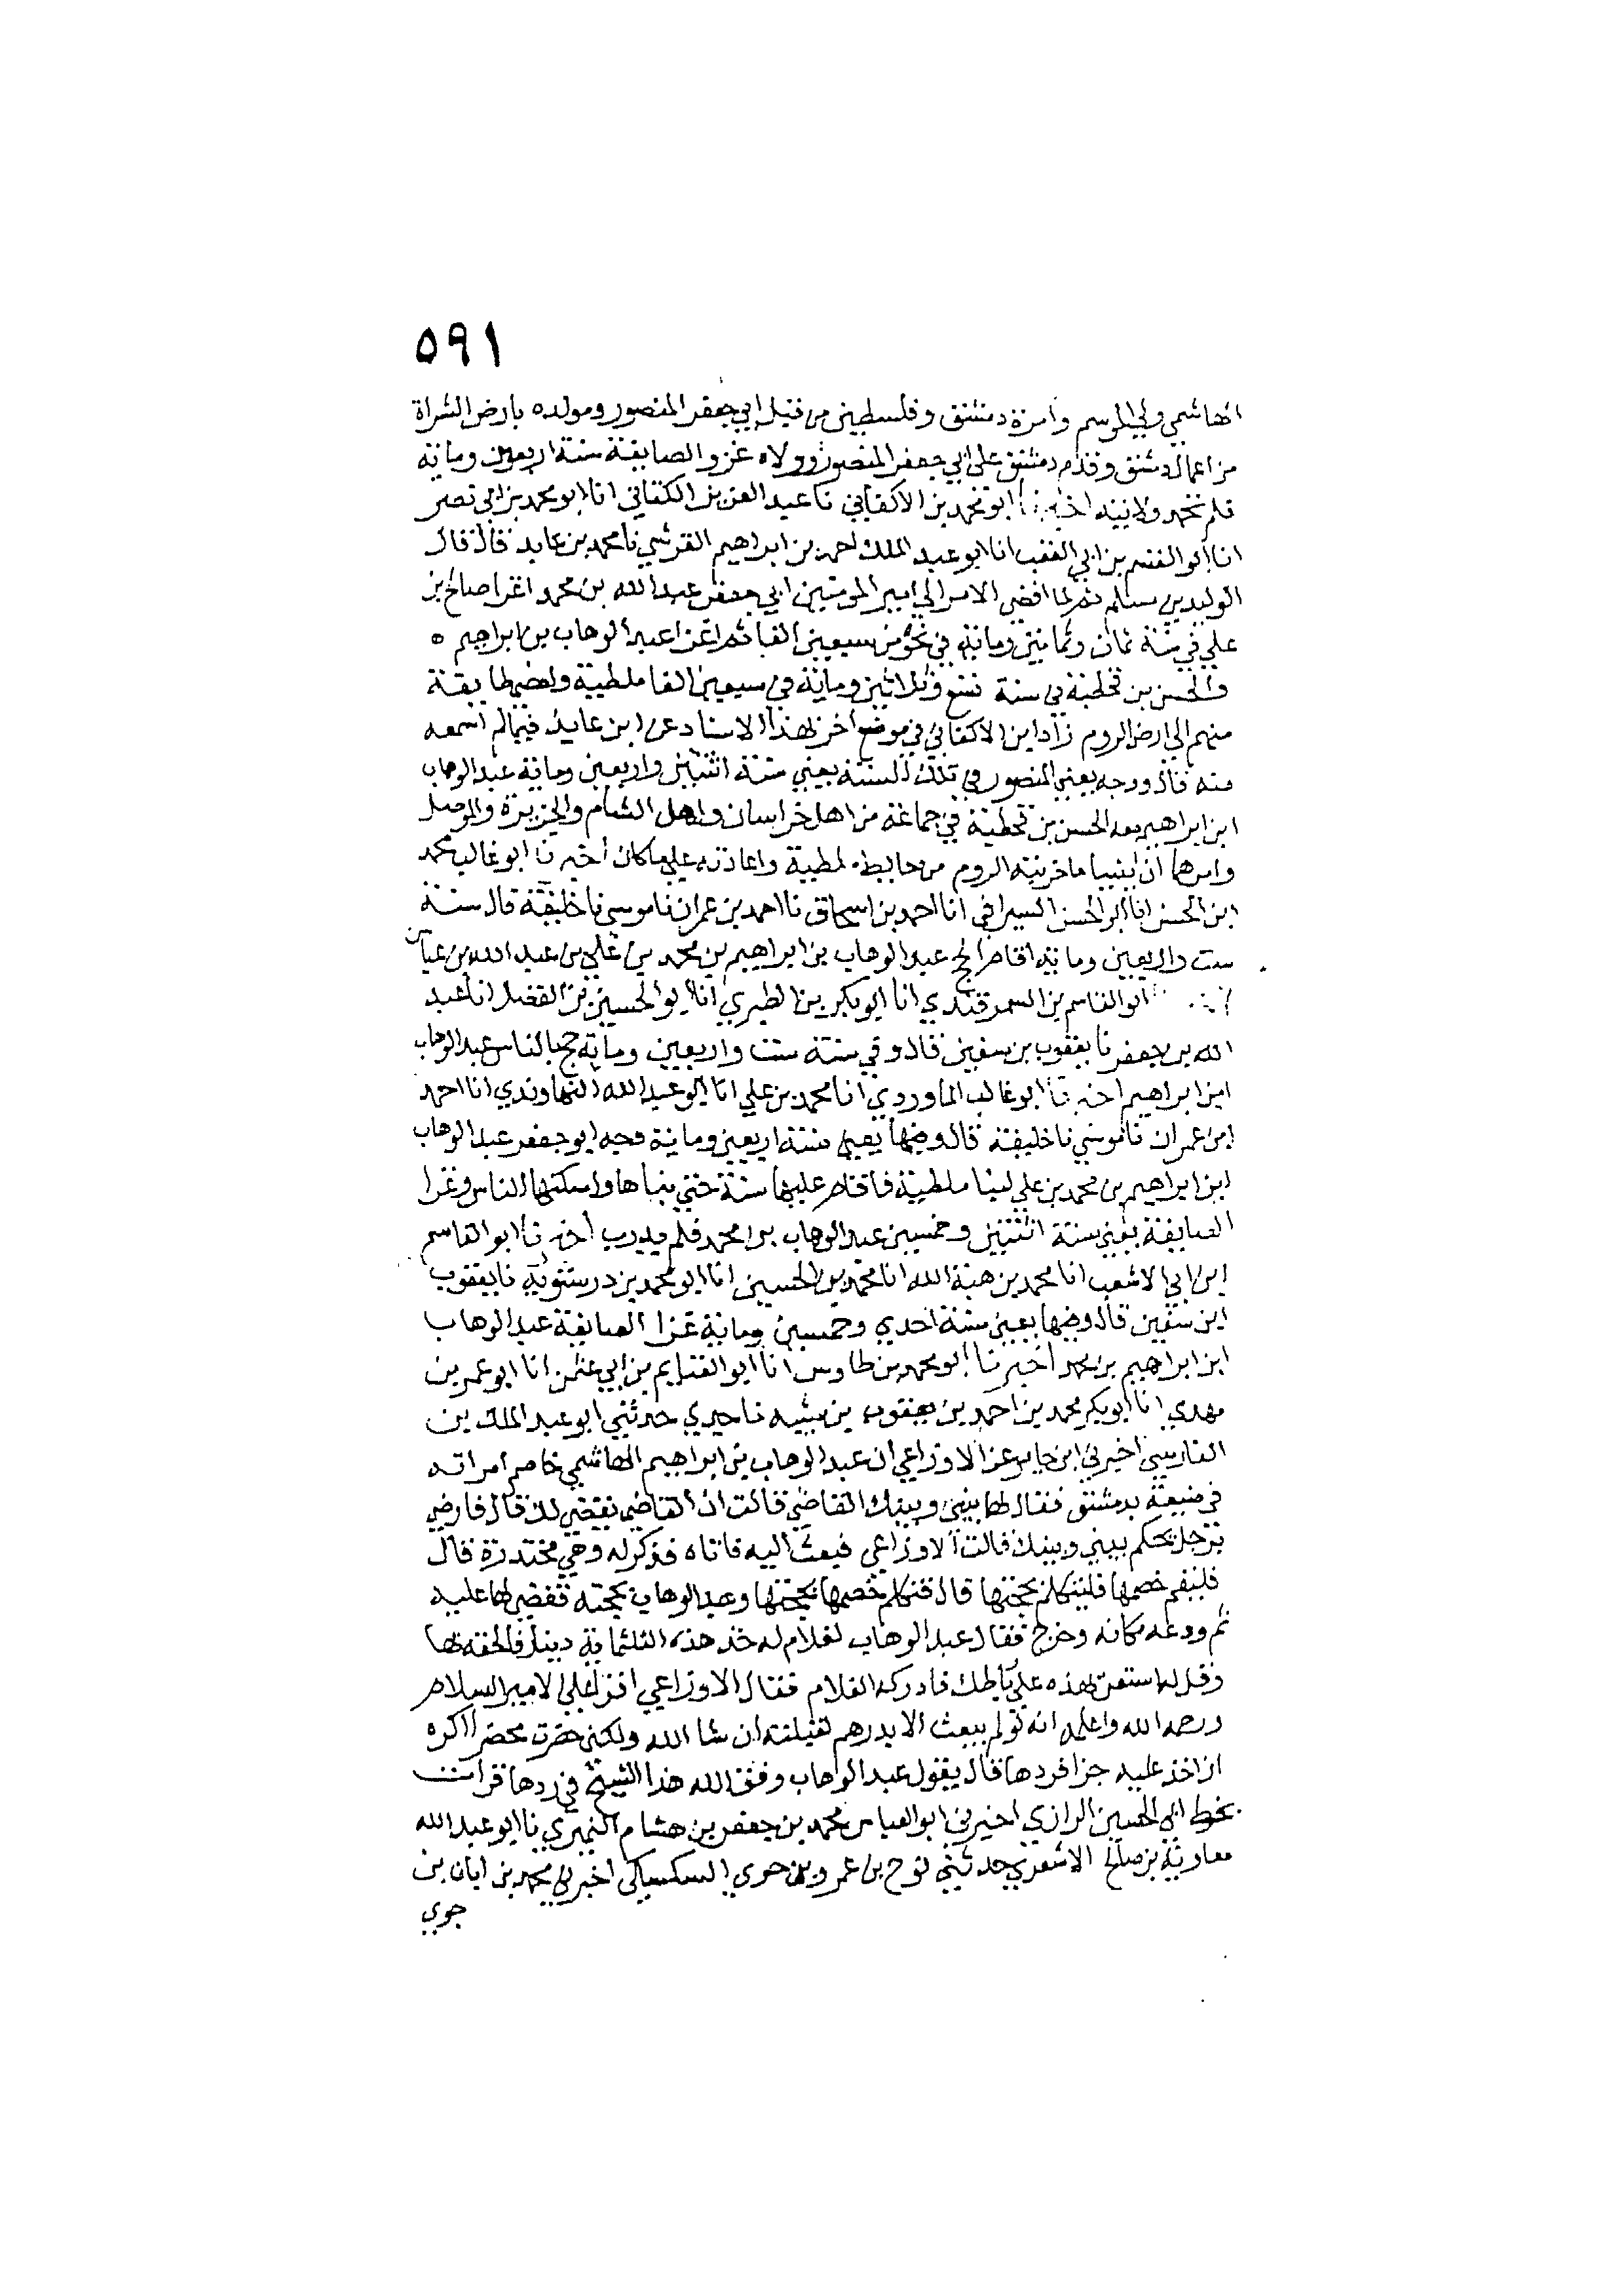 ٥٩١
الهاشمي ولي الموسم وامرة دمشق وفلسطين من قبل ابي جعفر المنصور ومولده بارض الشراة
من اعمال دمشق وقدم دمشق على ابي جعفر المنصور وولاه غزو الصايفة سنة اربعين وماية
فلم تحمد ولايته اخبرنا ابو محمد بن الاكفاني نا عبد العزيز الكتاني انا ابو محمد بن ابي نصر
انا ابو القسم بن ابي العقب انا ابو عبد الملك احمد بن ابراهيم القرشي نا محمد بن عايد قال قال
الوليد بن مسلم ثم لما افضى الامر الي امير المومنين ابي جعفر عبد الله بن محمد اغزا صالح بن
علي في سنة ثمان وثمانين وماية في نحو من سبعين الفا ثم اغزا عبد الوهاب بن ابراهيم ه
والحسن بن قحطبة في سنة تسع وثلاثين وماية في سبعين الفا ملطية ولعضها يقنة
منهم الي ارض الروم زاد ابن الاكفاني في موضع اخر بهذا الاسناد عن ابن عايد فيما لم اسمعه
منه قال ووجه يعني المنصور في تلك السنة يعني سنة اثنتين واربعين وماية عبد الوهاب
ابن ابراهيم معه الحسن بن قحطبة في جماعة من اهل خراسان واهل الشام والجزيرة والموصل
وامرهما ان يبنيا ما خربته الروم من حايط ملطية واعادته علي ما كان اخبرنا ابو غالب محمد
ابن الحسن انا ابو الحسن السيرافي انا احمد بن اسحاق نا احمد بن عمران نا موسي نا خليفة قال سنة
ست واربعين وماية اقام الحج عبد الوهاب بن ابراهيم بن محمد بن علي بن عبد الله بن عباس
ابو القاسم بن السمرقندي انا ابو بكر بن الطبري انا ابو الحسين بن الفضل انا عبد
الله بن جعفر نا يعقوب بن سفين قال وفي سنة ست واربعين وماية حج بالناس عبد الوهاب
ابن ابراهيم اخبرنا ابو غالب الماوردي انا محمد بن علي انا ابو عبد الله النهاوندي انا احمد
ابن عمران نا موسي نا خليفة قال وفيها يعني سنة اربعين وماية وجه ابو جعفر عبد الوهاب
ابن ابراهيم بن محمد بن علي لبنا ملطية فاقام عليها سنة حتي بناها واسكنها الناس وغزا
الصايفة يعني سنة اثنتين وخمسين عبد الوهاب بن محمد فلم يدرب اخبرنا ابو القاسم
ابن ابي الاشعب انا محمد بن هبة الله انا محمد بن الحسين انا ابو محمد بن درستوية نا يعقوب
ابن سفين قال وفيها يعني سنة احدي وخمسين وماية غزا الصايفة عبد الوهاب
ابن ابراهيم بن محمد اخبرنا ابو محمد بن طاوس انا ابو الغنايم بن ابي عثمن انا ابو عمر بن
مهدي انا ابو بكر محمد بن احمد بن يعقوب بن شيبه نا جدي حدثني ابو عبد الملك بن
الفارسي اخبرني ابن جابر عن الاوزاعي ان عبد الوهاب بن ابراهيم الهاشمي خاصم امراته
في ضيعة بدمشق فقال لها بيني وبينك القاضي قالت ان القاضي يقضي لك قال فارضي
برجل يحكم بيني وبينك قالت الاوزاعي فبعث اليه فاتاه فذكر له وهي مختدرة قال
فليقم خصمها فليتكلم بحجتها قال فتكلم خصمها بحجتها وعبد الوهاب بحجته فقضي لها عليه
ثم ودعه مكانه وخرج فقال عبد الوهاب لغلام له خذ هذه الثلثماية دينار فالحقه بها
وقل له استعن بهذه علي رباطك فادركه الغلام فقال الاوزاعي اقرا علي الامير السلام
ورحمه الله واعلمه انه لو لم يبعث الا بدرهم لقبلته ان شا الله ولكني حضرت محضرا اكره
ان اخذ عليه جزا فردها قال يقول عبد الوهاب وفق الله هذا الشيخ في ردها قرات
بخط ابي الحسين الرازي اخبرني ابو العباس محمد بن جعفر بن هشام النميري نا ابو عبد الله
معاوية بن صالح الاشعري حدثني نوح بن عمرو بن حوي السكسكي اخبرني محمد بن ابان بن
حوي